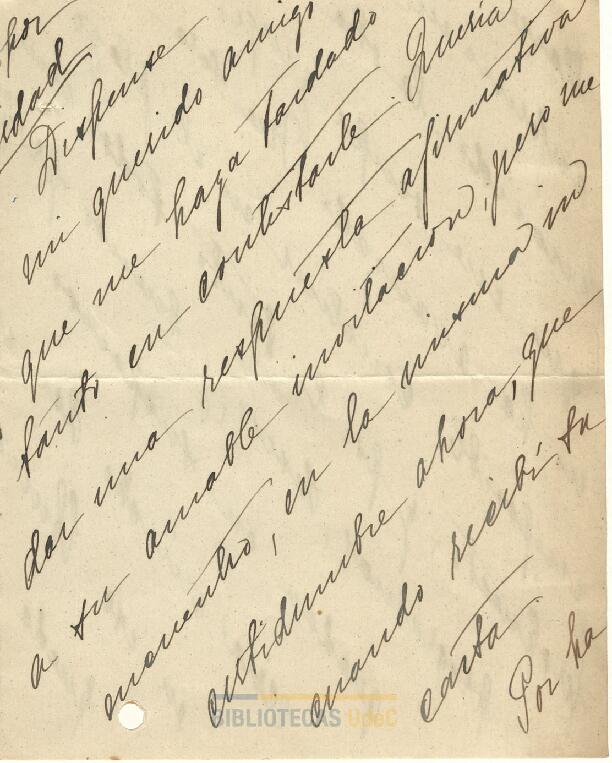 por
idad
Dispense
mi querido amigo
que me haya tardado
tanto en contestarle. Quería
dar una respuesta afirmativa
a su amable invitación, pero me
encuentro, en la misma in
certidumbre ahora, que
cuando recibí su
carta
Por ha
BIBLIOTECAS UdeC